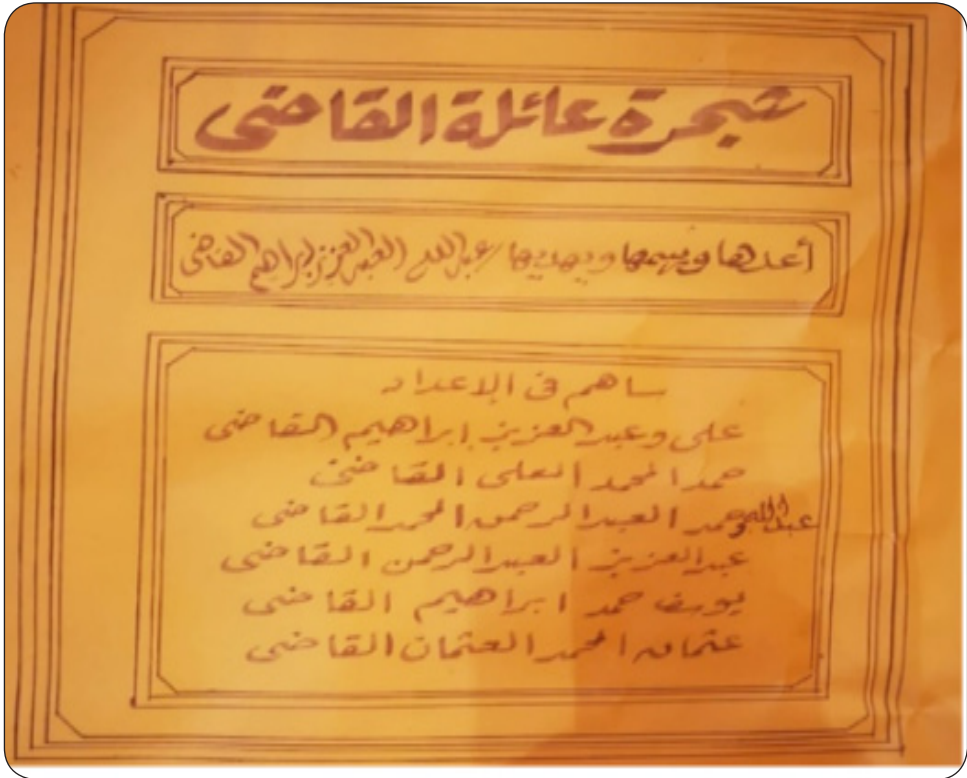 شجرة عائلة القاضى
أعدها ويسمها ويهديها / عبدالله العبدالعزيز ابراهيم القاضى
ساهم فى الإعداد
على وعبدالعزيز إبراهيم القاضى
حمد المحمد العلى القاضى
عبدالله وحمد العبدالرحمن المحمد القاضى
عبدالعزيز العبدالرحمن القاضى
يوسف حمد ابراهيم القاضى
عثمان المحمد العثمان القاضى